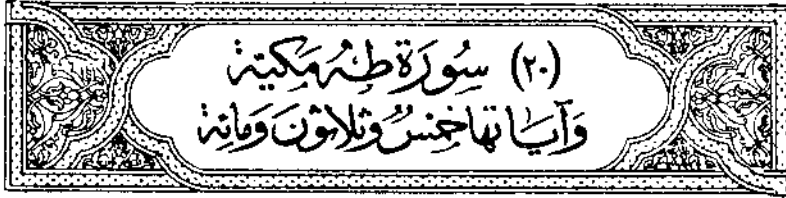 (٢٠) سُورَة طٰهٰ مَكِيَّة
وَآيَاتهَا خَمْسٌ وَثَلَاثُونَ وَمِائَة